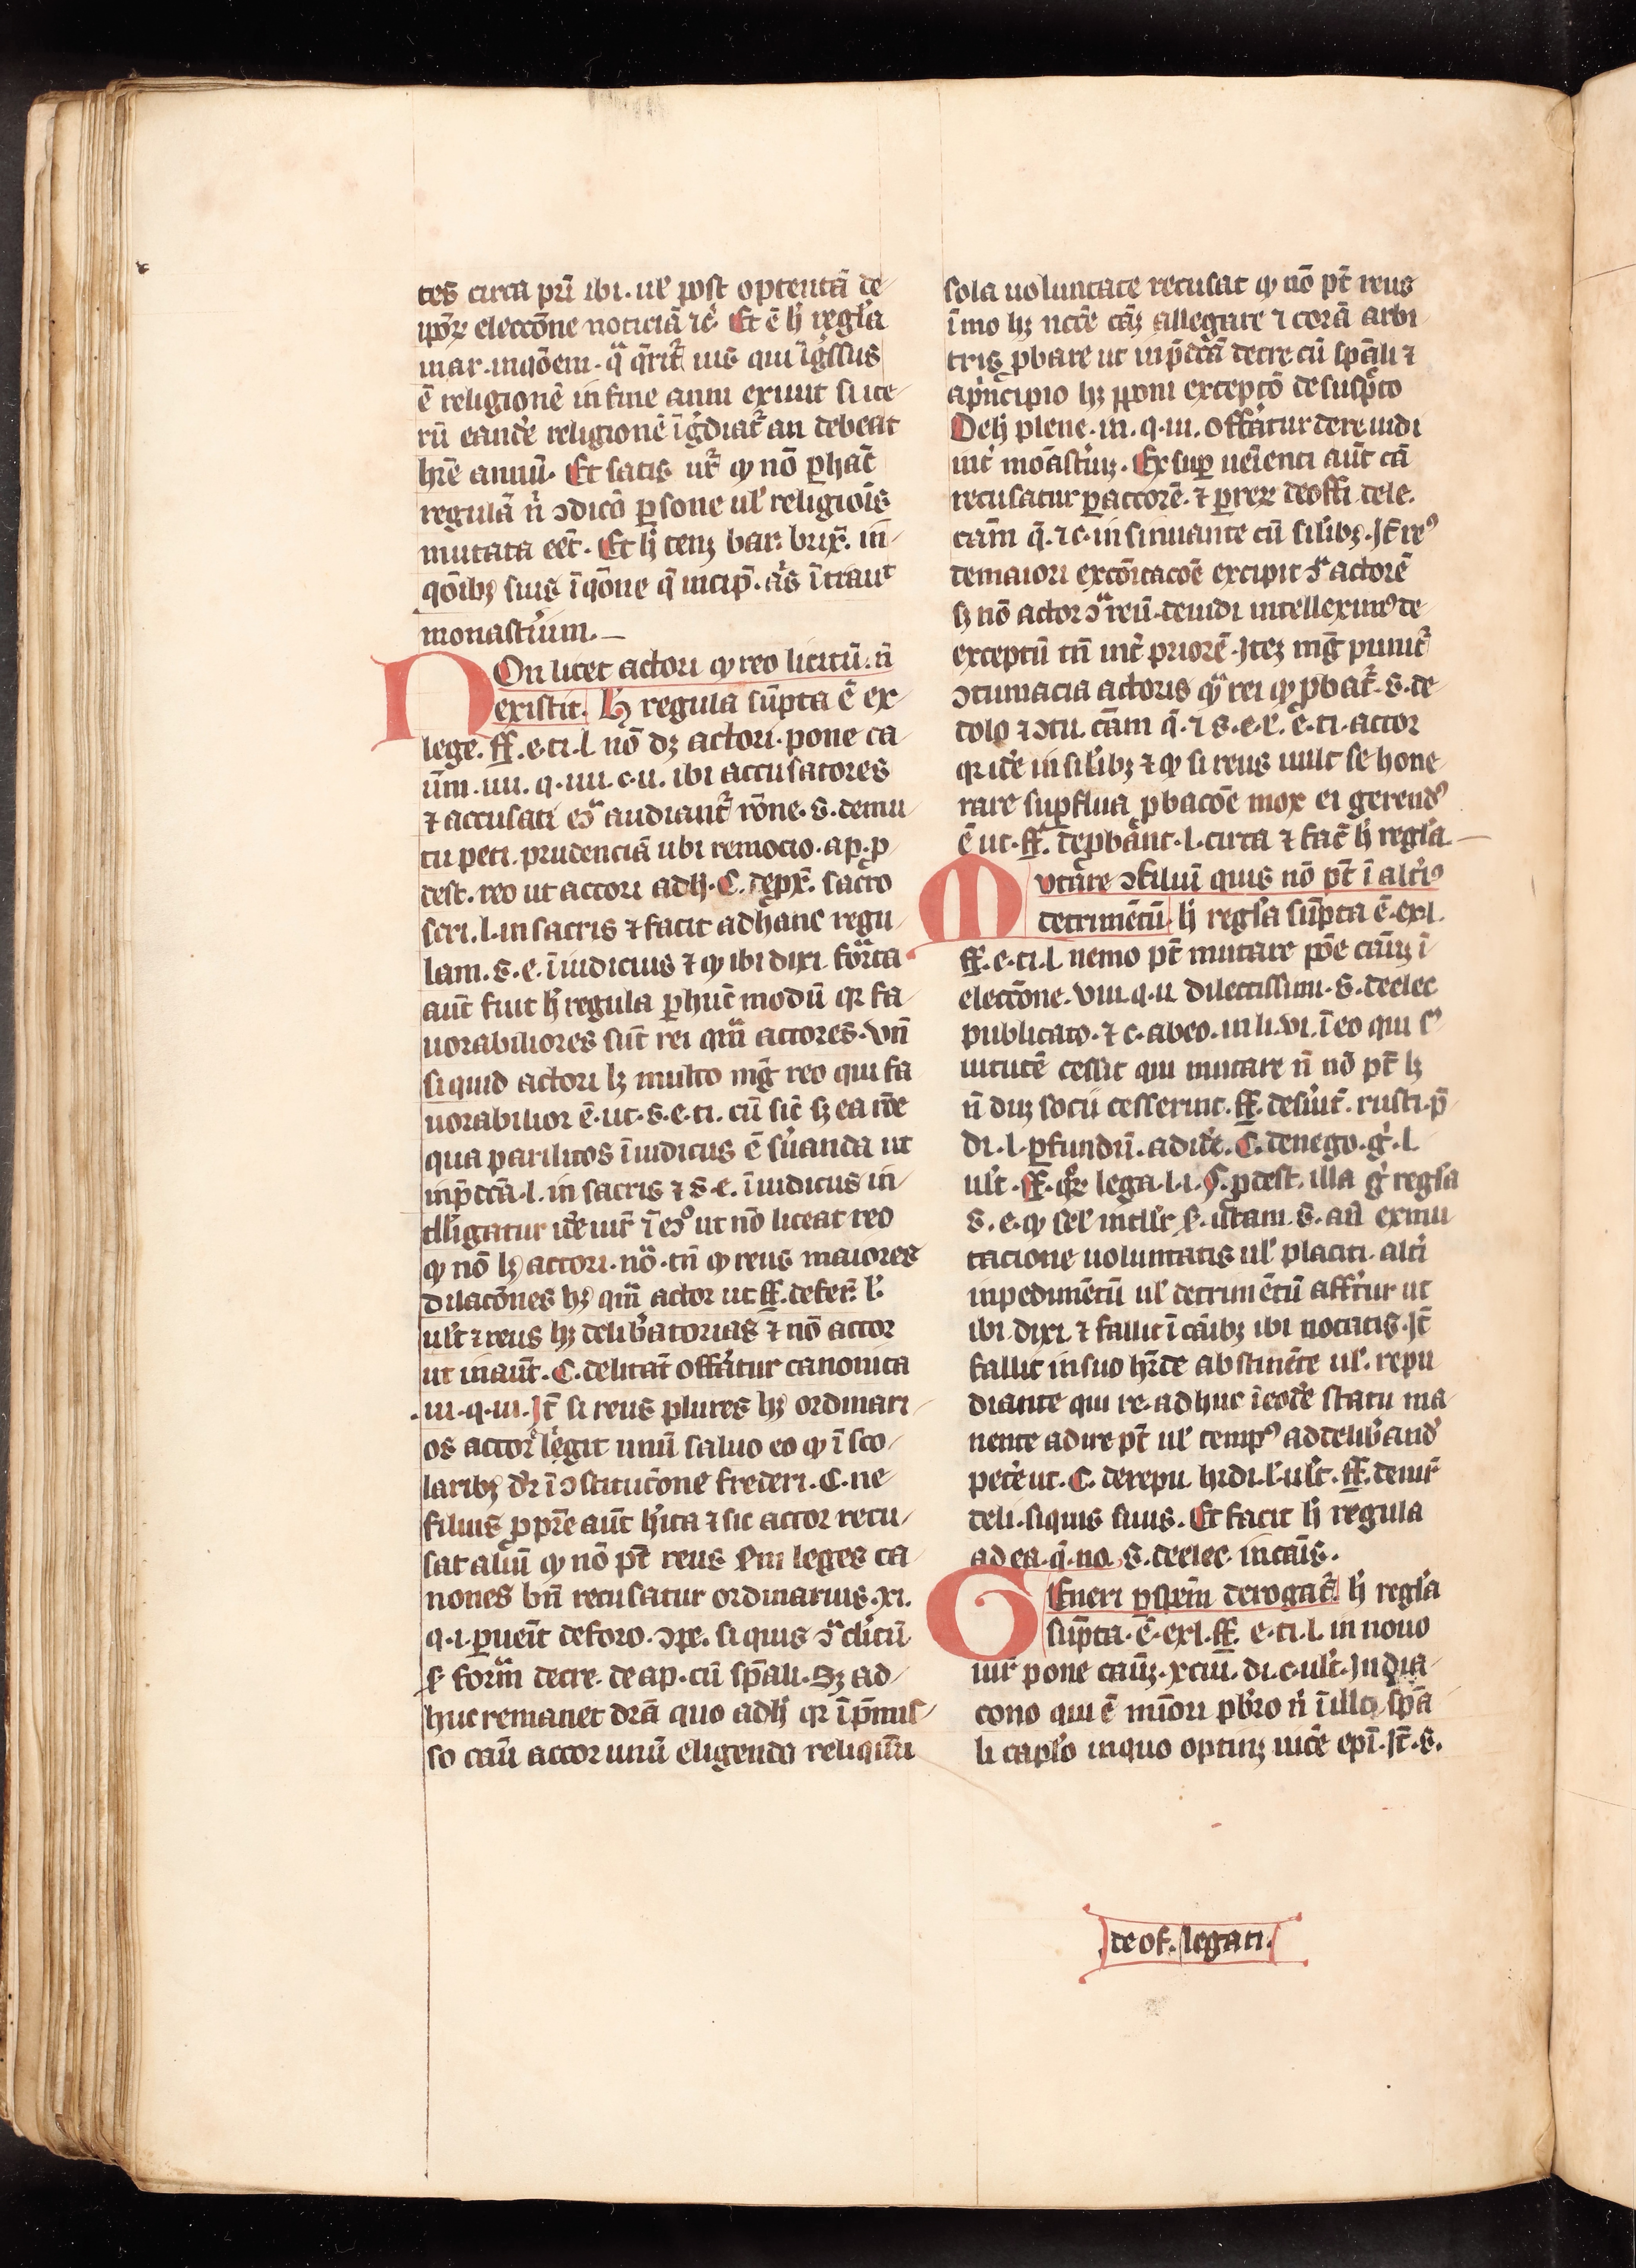 tes circa prī ibi. ul' post optentā de
ipōꝝ eleccōne noticiā ⁊c̄ Et ē h̄ regl'a
mar. inqōem. qͣ q̄rit᷑ uis qui īgͥssus
ē religionē in fine anni exiuit si ite
rū eandē religionē īgͥdiat᷑ an debeat
hr̄e annū. Et satis ur̄ ꝙ nō ꝑ hāc
regulā n̄ ꝯdicō ꝑsone ul' religiōis
mutata eēt. Et h̄ tenꝫ bar. brix̄. in
qōibꝫ suis īqōne q̄ incip̄. a's ītraut
monast'ium.
Non licet actori ꝙ reo licitū. n̄
existit. H̄ regula sūpta ē ex
lege. ff. e. ti. l. nō dꝫ actori. pone ca
ūm. iiii. q. iiii. c. ii. ibi accusatores
⁊ accusati eōͣ audiant᷑ rōne. s. demu
tu peti. prudenciā ubi remocio. ap. ꝓ
dest. reo ut actori adh̄. C. deꝓx̄. sacro
scri. l. in sacris ⁊ facit ad hanc regu
lam. s. e. ī iudiciis ⁊ ꝙ ibi dixi. forͣta
aūt fuit h̄ regula ꝑ hūc modū qꝛ fa
uorabiliores sūt rei qm̄ actores. vn̄
si quid actori lꝫ multo mg̅ reo qui fa
uorabilior ē. ut. s. e. ti. cū sīt sꝫ ea rōe
qua parilitos ī iudiciis ē s'uanda ut
inp̄dcā. l. in sacris ⁊ s. e. ī iudiciis in
tll'igatur idē iur̄ ī eōͦ ut nō liceat reo
ꝙ nō lꝫ actori. nō. tn̄ ꝙ reus maiores
dilacōnes hꝫ qm̄ actor ut ff. de fer̄. l.
ult' ⁊ reus hꝫ delib'atorias ⁊ nō actor
ut in aūt. C. de litāt offātur canonica
.iii. q. iii. It̄ si reus plures hꝫ ordinari
os actor' legit unū saluo eo ꝙ ī sco
laribꝫ dr̄ ī ꝯstitucōne frederi. C. ne
filius ꝓ pr̄e aūt h'ita ⁊ sic actor recu
sat aliū ꝙ nō pt̄ reus s'm leges ca
nones bn̄ recusatur ordinarius. xi.
q. i. ꝑuenīt de foro. ꝯpe. si quis ꝯͣ clicū
s' formͣ decre. de ap. cū sp̄ali. Sꝫ ad
huc remanet dr̄a quo adh̄ qꝛ ī p̄mis
so caū actor unū eligendo reliquū
sola uoluntate recusat ꝙ nō pt̄ reus
īmo hꝫ nccē cāꝫ allegare ⁊ corā arbi
tris ꝓbare ut in p̄dcā decre cū sp̄ali ⁊
a pͥncipio hꝫ ꝓponi exceptō de susp̄co
De h̄ plene. iii. q. iii. offātur de re iudi
int̄ moāst'iuꝫ. Ex sup ueīenti aūt cā
recusatur ꝑ actorē. ⁊ ꝑ reꝝ de offi. dele.
cām q̄. ⁊ c. insinuante cū sil'ibꝫ. It̄ reꝰ
de maiori excōicacōe excipit ꝯͣ actorē
sꝫ nō actor ꝯͣ reū. de iudi intelleximꝰ de
exceptū tn̄ int̄ priorē. Itēꝫ mg̅ punit᷑
ꝯtumacia actoris qͣ rei ꝙ ꝓbat᷑. s. de
dolo ⁊ ꝯtu. cām q̄. ⁊ s. e. r. c̄. ti. actor
qꝛ idē in sil'ibꝫ ⁊ ꝙ si reus uult se hone
rare suꝑflua ꝓbacōe mox ei gerendꝰ
ē ut. ff. de ꝓbānt. l. circa ⁊ fac̄ h̄ regl'a.
Mutare ꝯsiliuī quis nō pt̄ ī alt'iꝰ
detrimētū h̄ regl'a sūpta ē. ex l.
ff. e. ti. l. nemo pt̄ mutare pōe cāuꝫ ī
eleccōne. viii. q. ii. dilectissimi. s. de elec
publicato. ⁊ c. ab eo. in li. vi. ī eo qui s'
uitutē cessit qui mutare n̄ nō pt̄ lꝫ
n̄ diuꝫ socii cesserint. ff. de s'uit. rusti. p̄
di. l. ꝑ fundū. adidē. C. de nego. g'. l.
ult'. ff. qr̄ lega. l. i. §. ꝓdest. illa g̊ regl'a
s. e. ꝙ sel' intll'r s'. utam. s. aū ex mu
tacione uoluntatis ul' placiti. alt'i
inpedimētū ul' detrimētū affr̄tur ut
ibi. dixi. ⁊ fallit ī cāibꝫ ibi notatis. It̄
fallit in suo hr̄de abstinēte ul'. repu
diante qui re. adhuc ī eodē statu ma
nente adire pt̄ ul' tempꝰ ad delib'andꝰ
petē ut. C. de repu. hrdi. l. ult'. ff. de iur̄
deli. si quis suus. Et facit h̄ regula
ad ea. q̄. no. s. de elec. in cāis.
Generi ꝑ sp̄m derogat᷑. h̄ regl'a
sūpta. ē. ex l. ff. e. ti. l. in nouo
iur̄ pone cāuꝫ. xciii. di. c. ult'. In dia
cono qui ē mīori pb'ro n̄ ī illo sp̄a
li capl'o in quo optinꝫ uicē epī. It̄. s.
de of. legati.